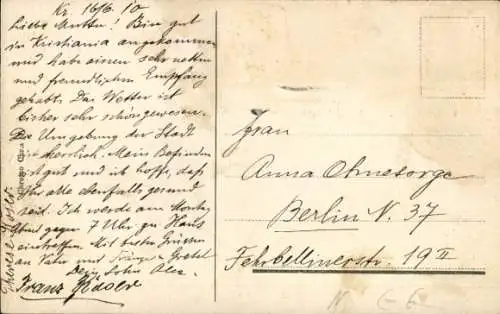 Kr. 16/6. 10
Liebe Mutter! Bin gut
in Kristiania angekommen
und habe einen sehr netten
und freundlichen Empfang
gehabt. Das Wetter ist
bisher sehr schön gewesen.
Die Umgebung der Stadt
ist herrlich. Mein Befinden
ist gut und ich hoffe, daß
Ihr alle ebenfalls gesund
seid. Ich werde am Montag
Abend gegen 7 Uhr zu Haus
eintreffen. Mit besten Grüssen
an Vater und Gretel
Dein Sohn Alex.
Franz
Therese
Frau
Anna Ohnesorge
Berlin N. 37
Fehrbellinerstr. 19 II